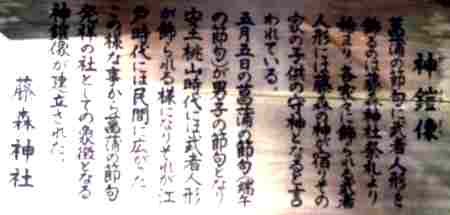 神鎧像
菖蒲の節句に武者人形を
飾るのは藤森神社祭礼より
始まり、各家々に飾られる武者
人形には藤森の神が宿りその
家の子供の守神となると言
われている。
五月五日の菖蒲の節句(端午
の節句)が男子の節句となり
安土桃山時代には武者人形
が飾られる様になりそれが江
戸時代には民間に広がった
この様な事から菖蒲の節句
発祥の社としての象徴となる
神鎧像が建立された。
藤森神社